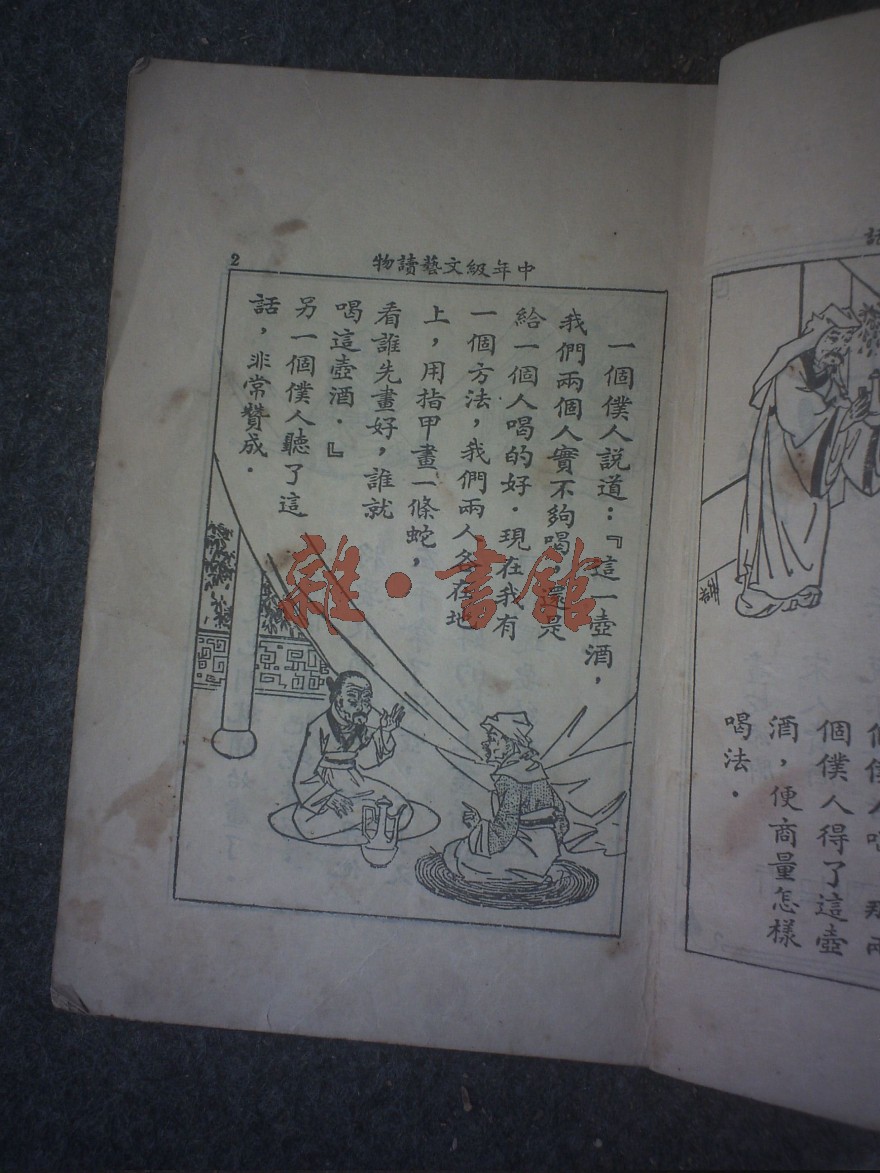 個僕人得了這壺
酒，便商量怎樣
喝法．
中年級文藝讀物
2
一個僕人說道：『這一壺酒，
我們兩個人實不夠喝，還是
給一個人喝的好．現在我有
一個方法，我們兩人各在地
上，用指甲畫一條蛇，
看誰先畫好，誰就
喝這壺酒．』
另一個僕人聽了這
話，非常贊成．
雜·書館